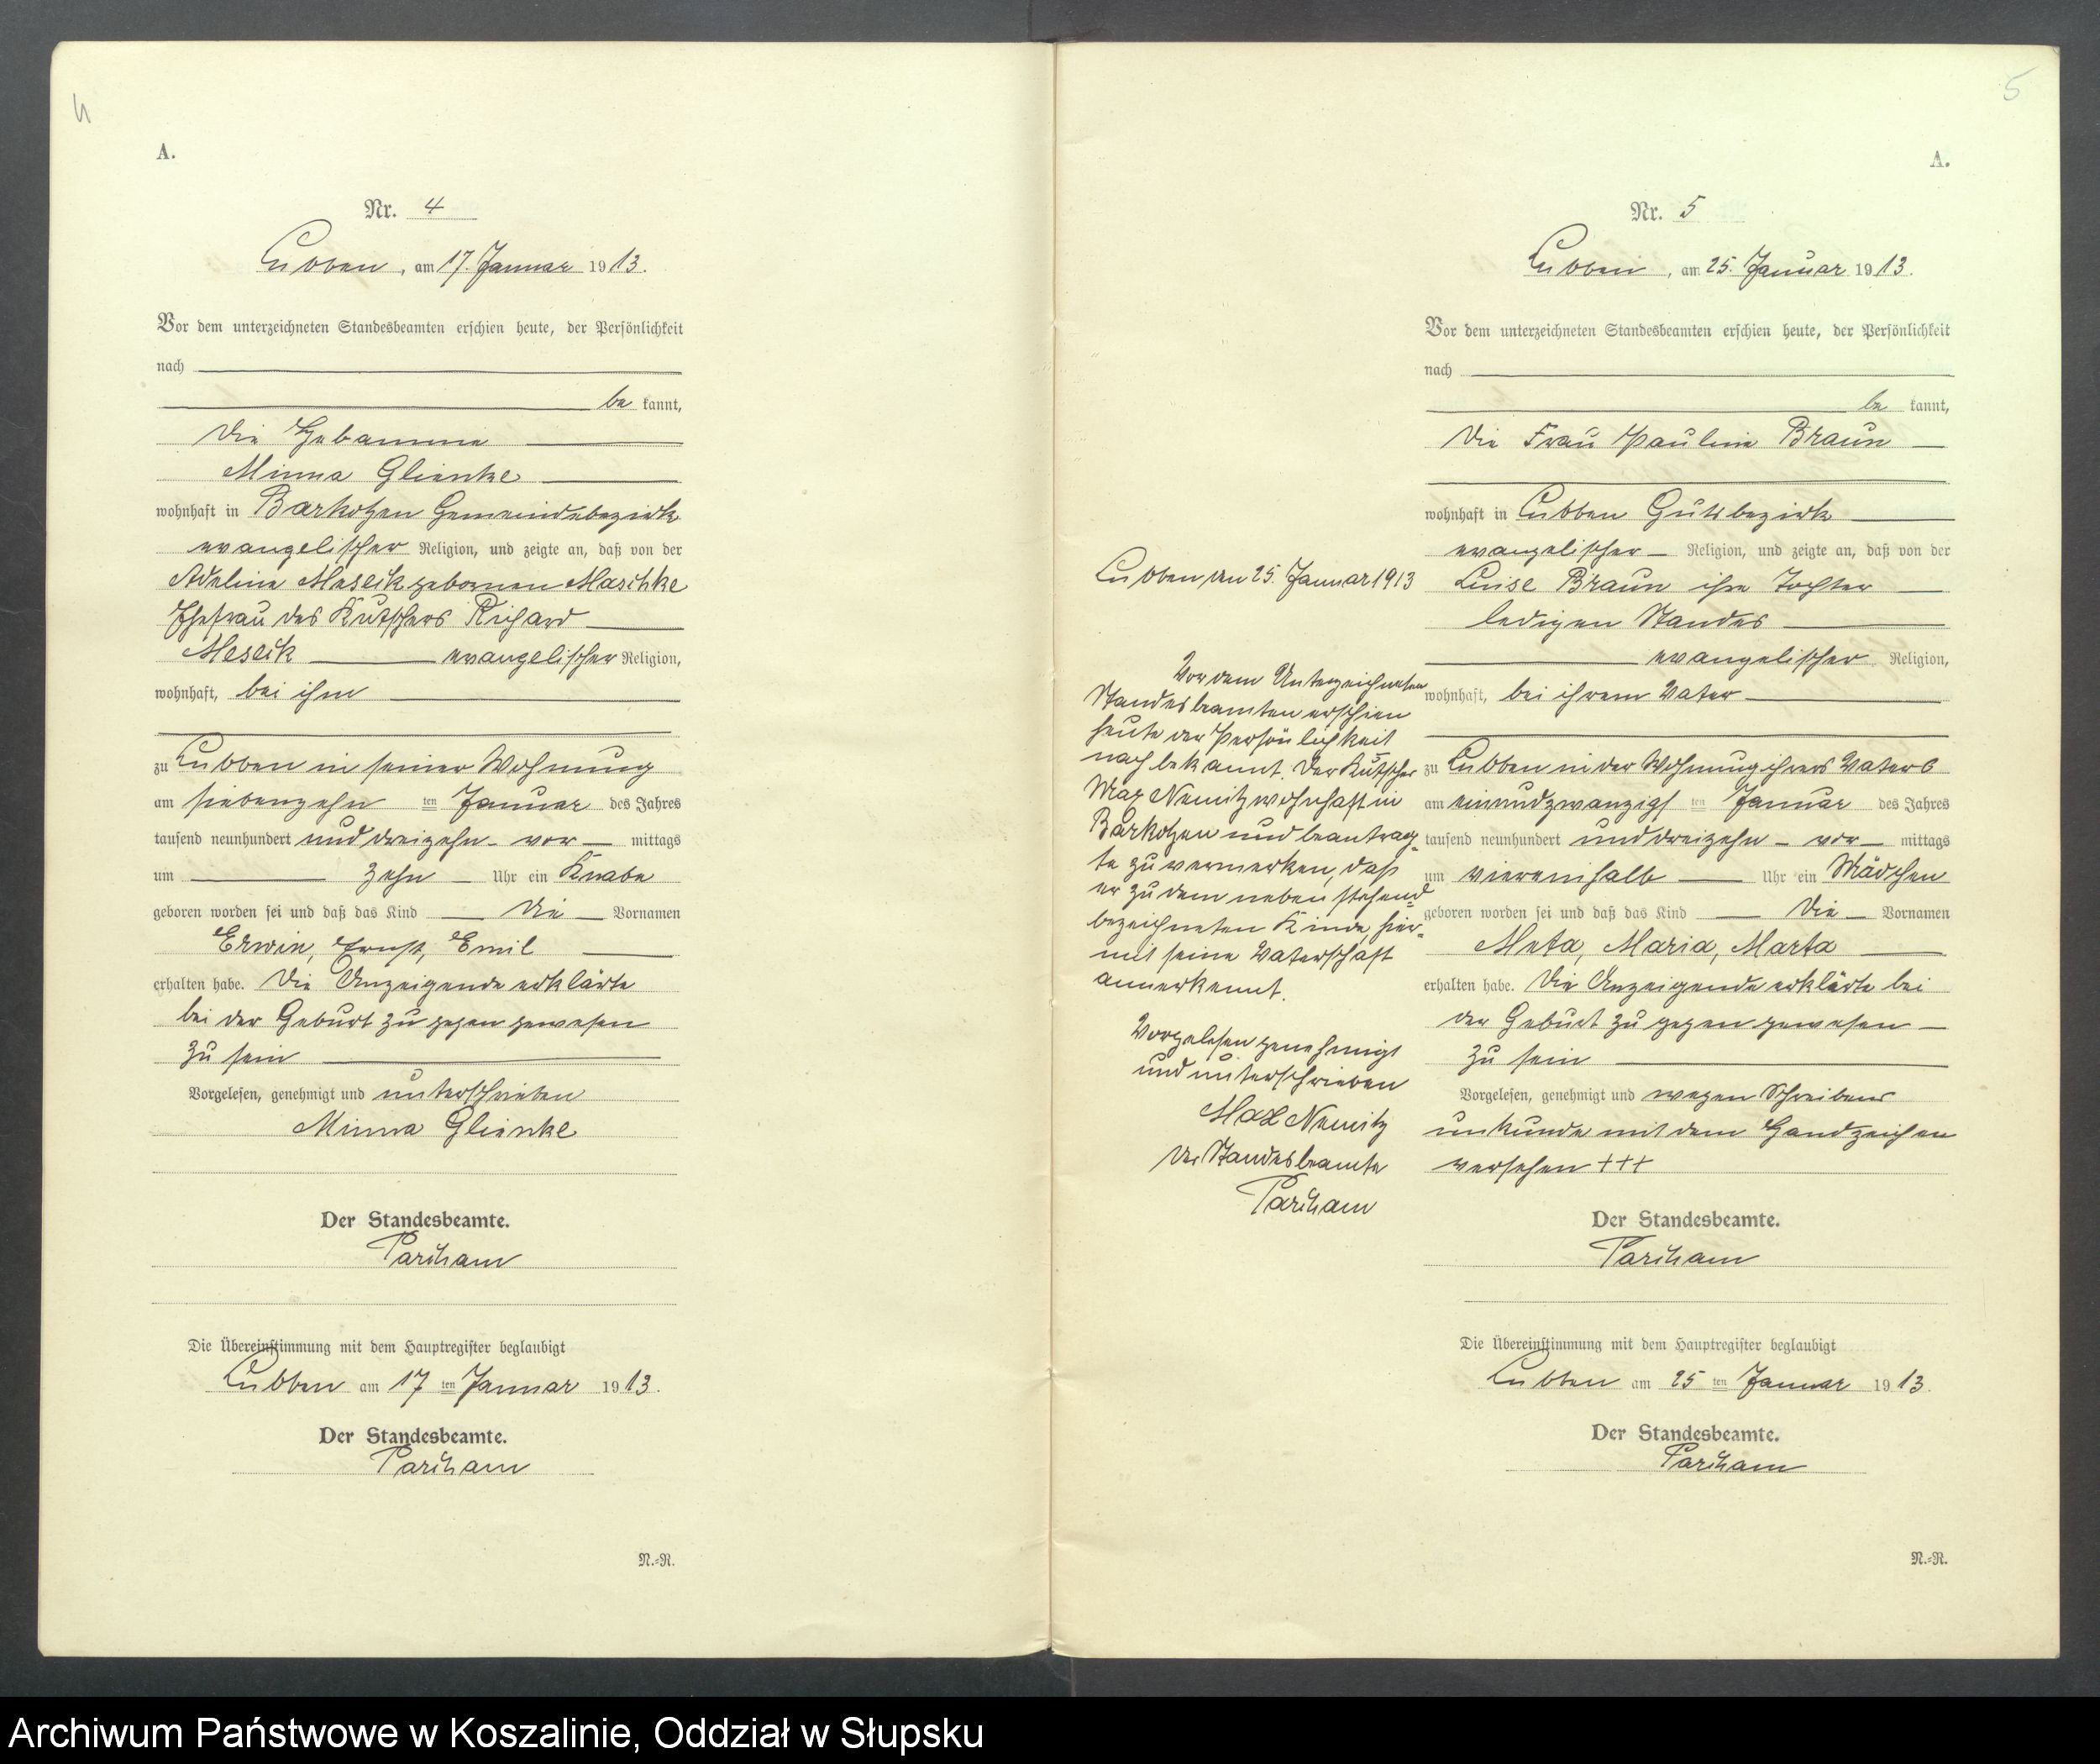 4
A.
Nr. 4
Lubben, am 17. Januar 1913.
Vor dem unterzeichneten Standesbeamten erschien heute, der Persönlichkeit
nach
be kannt,
die Hebamme
Minna Glienke
wohnhaft in Barkotzen Gemeindebezirk
evangelischer Religion, und zeigte an, daß von der
Adeline Meseik gebornen Maschke
Ehefrau des Kutschers Richard
Meseik evangelischer Religion,
wohnhaft, bei ihm
zu Lubben in seiner Wohnung
am siebenzehn ten Januar des Jahres
tausend neunhundert und dreizehn vor mittags
um zehn Uhr ein Knabe
geboren worden sei und daß das Kind die Vornamen
Erwin, Ernst, Emil
erhalten habe. Die Anzeigende erklärte
bei der Geburt zugegen gewesen
zu sein
Vorgelesen, genehmigt und unterschrieben
Minna Glienke
Der Standesbeamte.
Die Übereinstimmung mit dem Hauptregister beglaubigt
Lubben am 17 ten Januar 1913.
Der Standesbeamte.
N.=R.
5
A.
Nr. 5
Lubben, am 25. Januar 1913.
Vor dem unterzeichneten Standesbeamten erschien heute, der Persönlichkeit
nach
be kannt,
die Frau Pauline Braun
wohnhaft in Lubben Gutsbezirk
evangelischer Religion, und zeigte an, daß von der
Luise Braun ihre Tochter
ledigen Standes
evangelischer Religion,
wohnhaft, bei ihrem Vater
zu Lubben in der Wohnung ihres Vaters
am einundzwanzigs ten Januar des Jahres
tausend neunhundert und dreizehn vor mittags
um viereinhalb Uhr ein Mädchen
geboren worden sei und daß das Kind die Vornamen
Meta, Maria, Marta
erhalten habe. Die Anzeigende erklärte bei
der Geburt zugegen gewesen
zu sein
Vorgelesen, genehmigt und wegen Schreibens
unkunde mit dem Handzeichen
versehen +++
Der Standesbeamte.
Die Übereinstimmung mit dem Hauptregister beglaubigt
Lubben am 25 ten Januar 1913.
Der Standesbeamte.
N.=R.
Lubben, den 25. Januar 1913
Vor dem Unterzeichneten
Standesbeamten erschien
heute der Persönlichkeit
nach bekannt. Der Kutscher
Max Nemitz wohnhaft in
Barkotzen und beantrag-
te zu vermerken, daß
er zu dem nebenstehend
bezeichneten Kinde, hier-
mit seine Vaterschaft
annerkennt.
Vorgelesen genehmigt
und unterschrieben
Max Nemitz
Der Standesbeamte
Archiwum Państwowe w Koszalinie, Oddział w Słupsku